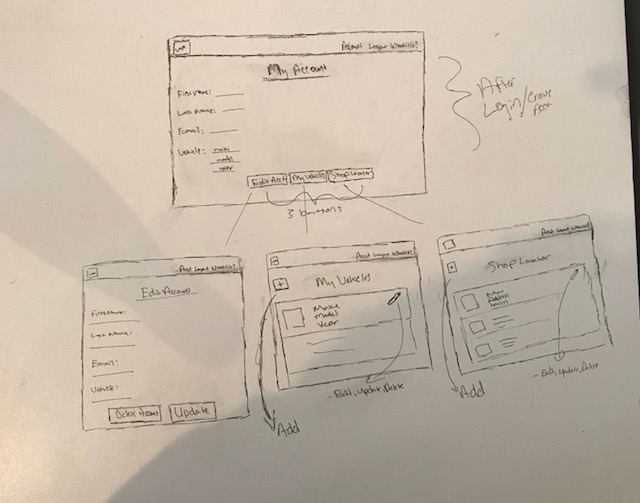 Account Logout
My Account
First Name:
Last Name:
Email:
Vehicle: make
model
year
Edit Acct
My Vehicles
Shop Locator
3 buttons
After
Login/Create
Acct
Acct Logout
Edit Account
First Name:
Last Name:
Email:
Vehicle:
Delete Account
Update
Acct Logout
+
My Vehicles
Make
Model
Year
- Edit, Update, Delete
Add
Acct Logout
+
Shop Locator
Name
Address
- Edit, Update, Delete
Add